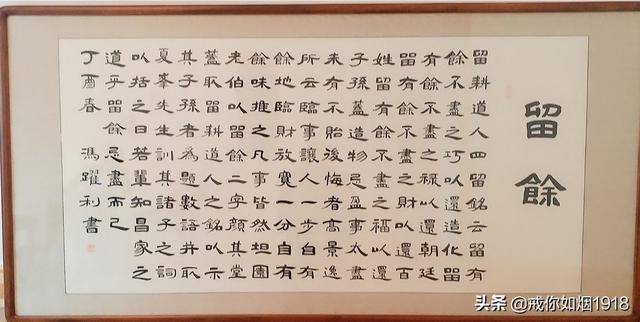 留餘
留耕道人四留銘云留有
餘不盡之巧以還造化留
有餘不盡之禄以還朝廷
留有餘不盡之財以還百
姓留有餘不盡之福以還
子孫蓋造物忌盈事太盡
未有不貽後悔者高景逸
所云臨事讓人一步自有
餘地臨財放寬一分自有
餘味推之凡事皆然坦園
老伯以留餘二字顏其堂
蓋取留耕道人之銘以示
其子孫者為題數語并取
夏峯先生訓其諸子之詞
以括之曰若輩知昌家之
道乎留餘忌盡而已
丁酉春 馮躍利書
头条 @戒你如烟1918